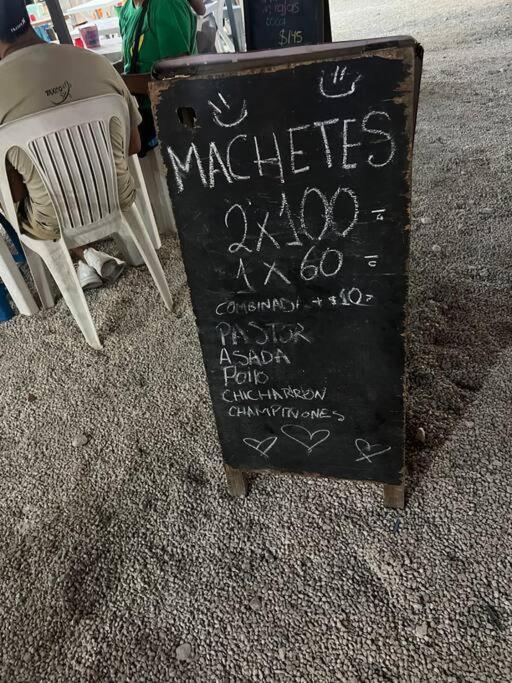 $145
MACHETES
2X100
1X60
COMBINADA + $10
PASTOR
ASADA
Pollo
CHICHARRON
CHAMPIÑONES